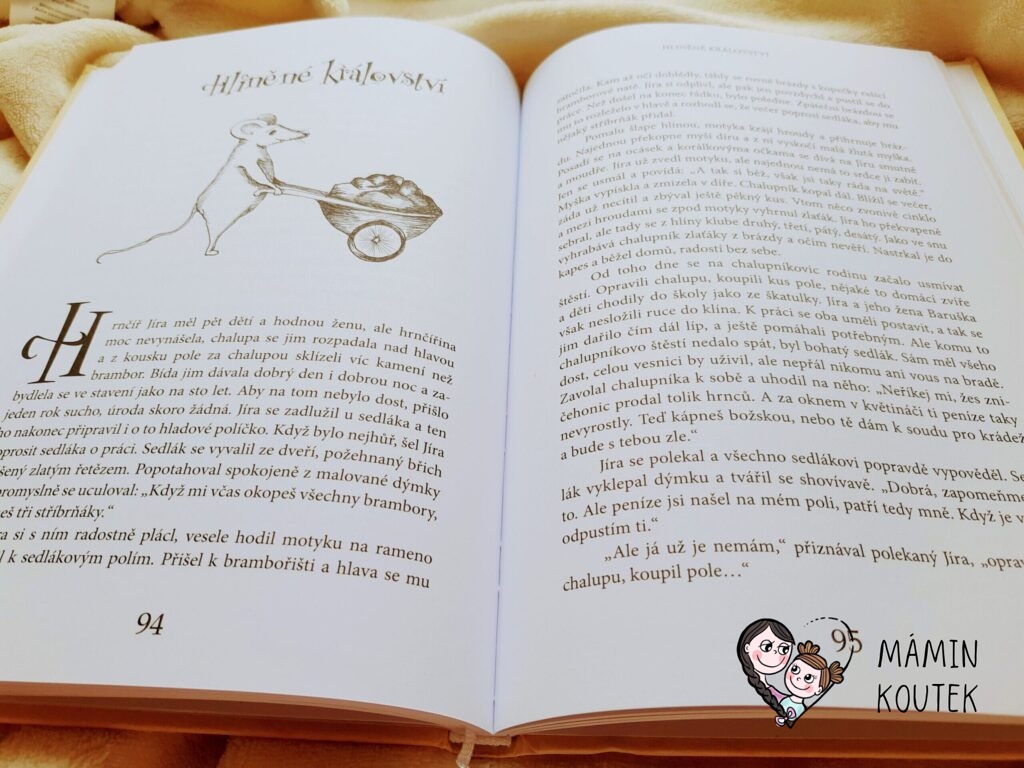 Hliněné království
Hrnčíř Jíra měl pět dětí a hodnou ženu, ale hrnčířina
moc nevynášela, chalupa se jim rozpadala nad hlavou
a z kousku pole za chalupou sklízeli víc kamení než
brambor. Bída jim dávala dobrý den i dobrou noc a za-
bydlela se ve stavení jako na sto let. Aby na tom nebylo dost, přišlo
jeden rok sucho, úroda skoro žádná. Jíra se zadlužil u sedláka a ten
ho nakonec připravil i o to hladové políčko. Když bylo nejhůř, šel Jíra
poprosit sedláka o práci. Sedlák se vyvalil ze dveří, požehnaný břich
 šený zlatým řetězem. Popotahoval spokojeně z malované dýmky
promyslně se uculoval: „Když mi včas okopeš všechny brambory,
eš tři stříbrňáky.“
ra si s ním radostně plácl, vesele hodil motyku na rameno
l k sedlákovým polím. Přišel k bramborišti a hlava se mu
94
HLINĚNÉ KRÁLOVSTVÍ
zatočila. Kam až oči dohlédly, táhly se rovné brázdy s kopečky rašící
bramborové natě. Jíra si odplivl, ale pak jen povzdychl a pustil se do
práce. Než došel na konec řádku, bylo poledne. Zpáteční brázdou se
mu to rozleželo v hlavě a rozhodl se, že večer poprosí sedláka, aby mu
nějaký stříbrňák přidal.
Pomalu šlape hlínou, motyka krájí hroudy a přihrnuje bráz-
du. Najednou překopne myší díru a z ní vyskočí malá žlutá myška.
Posadí se na ocásek a korálkovýma očkama se dívá na Jíru smutně
a moudře. Jíra už zvedl motyku, ale najednou nemá to srdce ji zabít.
Jen se usmál a povídá: „A tak si běž, však jsi taky ráda na světě.“
Myška vypískla a zmizela v díře. Chalupník kopal dál. Blížil se večer,
záda už necítil a zbýval ještě pěkný kus. Vtom něco zvonivě cinklo
a mezi hroudami se zpod motyky vyhrnul zlaťák. Jíra ho překvapeně
sebral, ale tady se z hlíny klube druhý, třetí, pátý, desátý. Jako ve snu
vyhrabává chalupník zlaťáky z brázdy a očím nevěří. Nastrkal je do
kapes a běžel domů, radostí bez sebe.
Od toho dne se na chalupníkovic rodinu začalo usmívat
štěstí. Opravili chalupu, koupili kus pole, nějaké to domácí zvíře
a děti chodily do školy jako ze škatulky. Jíra a jeho žena Baruška
však nesložili ruce do klína. K práci se oba uměli postavit, a tak se
jim dařilo čím dál líp, a ještě pomáhali potřebným. Ale komu to
chalupníkovo štěstí nedalo spát, byl bohatý sedlák. Sám měl všeho
dost, celou vesnici by uživil, ale nepřál nikomu ani vous na bradě.
Zavolal chalupníka k sobě a uhodil na něho: „Neříkej mi, žes zni-
čehonic prodal tolik hrnců. A za oknem v květináči ti peníze taky
nevyrostly. Teď kápneš božskou, nebo tě dám k soudu pro krádež
a bude s tebou zle.“
Jíra se polekal a všechno sedlákovi popravdě vypověděl. Se
lák vyklepal dýmku a tvářil se shovívavě. „Dobrá, zapomeňme
to. Ale peníze jsi našel na mém poli, patří tedy mně. Když je v
odpustím ti.“
„Ale já už je nemám,“ přiznával polekaný Jíra, „oprav
chalupu, koupil pole…“
95
MÁMIN
KOUTEK